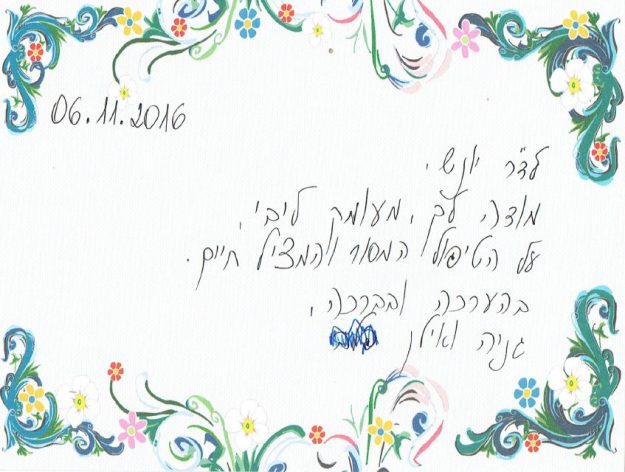 06.11.2016
לד"ר יונש,
מודה לך, מעומק ליבי,
על הטיפול המסור והמציל חיים.
בהערכה ובברכה,
גניה ואילן